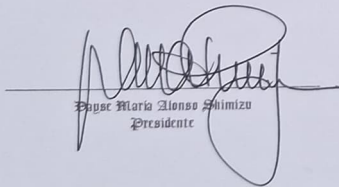 Dayse Maria Alonso Shimizu
Presidente